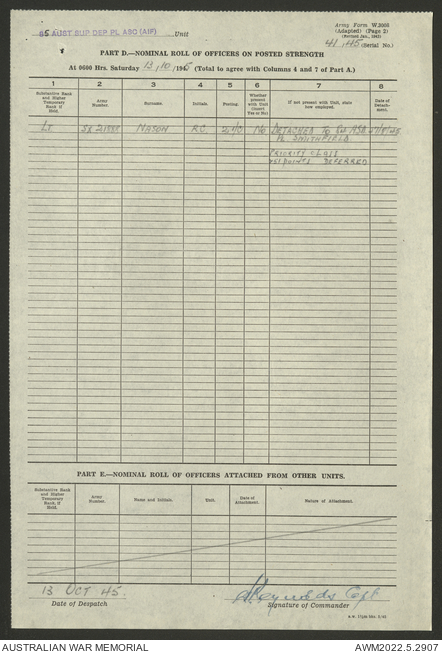 AUST SUP DEP PL ASC (AIF) Unit
Army Form W.3008
(Adapted) (Page 2)
(Revised Jan., 1943)
41/45 (Serial No.)
PART D.—NOMINAL ROLL OF OFFICERS ON POSTED STRENGTH
At 0600 Hrs. Saturday 13/10/1945 (Total to agree with Columns 4 and 7 of Part A.)
1 2 3 4 5 6 7 8
Substantive Rank and Higher Temporary Rank if Held.
Army Number.
Surname.
Initials.
Posting.
Whether present with Unit (insert Yes or No)
If not present with Unit, state how employed.
Date of Detachment.
Lt. MASON R.C. No DETACHED TO
PL SMITHFIELD
PRIORITY CLASS
DEFERRED
PART E.—NOMINAL ROLL OF OFFICERS ATTACHED FROM OTHER UNITS.
Substantive Rank and Higher Temporary Rank, if Held.
Army Number.
Name and Initials.
Unit.
Date of Attachment.
Nature of Attachment.
13 OCT 45.
Date of Despatch
Reynolds Capt
Signature of Commander
AUSTRALIAN WAR MEMORIAL
AWM2022.5.2907